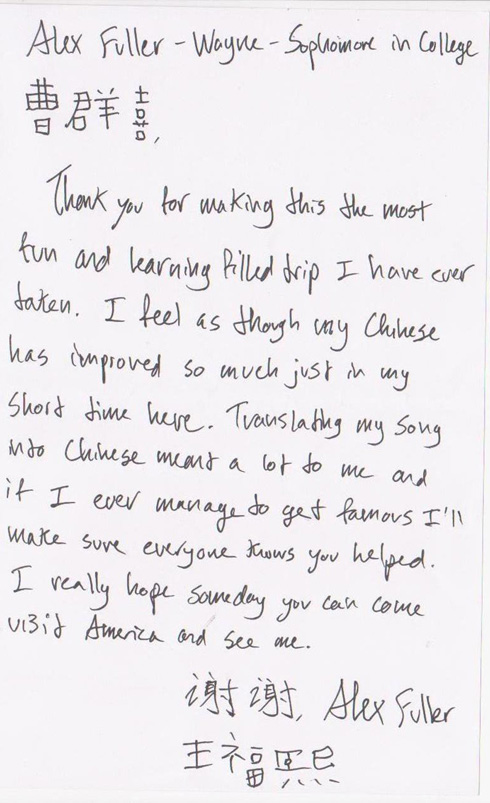 Alex Fuller - Wayne - Sophomore in College
曹群喜,
Thank you for making this the most
fun and learning filled trip I have ever
taken. I feel as though my Chinese
has improved so much just in my
short time here. Translating my song
into Chinese meant a lot to me and
if I ever manage to get famous I'll
make sure everyone knows you helped.
I really hope someday you can come
visit America and see me.
谢谢, Alex Fuller
王福熙